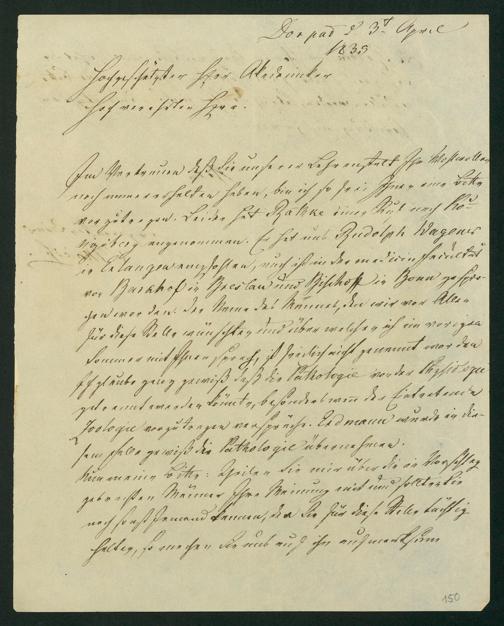 Dorpat d 3t April
1835
Hochgeschätzter Herr Akademiker
Hochverehrter Herr.
Im Vertrauen daß Sie unserer Lehranstalt Ihr Wohlwollen
noch immer erhalten haben, bin ich so frei Ihnen eine Bitte
vorzutragen. Leider hat Rathke einen Ruf nach Kö-
nigsberg angenommen. Er hat uns Rudolph Wagner
in Erlangen empfohlen, auch ist in der medicin Facultät
von Barkhof in Breslau und Bischoff in Bonn gespro-
chen worden. Der Name des Mannes, den wir vor Allen
für diese Stelle wünschten und über welchen ich im vorigen
Sommer mit Ihnen sprach, ist freilich nicht genannt worden
Ich glaube ganz gewiß daß die Pathologie von der Physiologie
getrennt werden könnte, besonders wenn der Eintretende
Zoologie vorzutragen verspräche. Erdmann würde in die-
sem Falle gewiß die Pathologie übernehmen.
Nun meine Bitte: Theilen Sie mir über die in Vorschlag
gebrachten Männer Ihre Meinung mit und sollten Sie
noch sonst Jemand kennen, den Sie für diese Stelle tüchtig
halten, so machen Sie uns auf ihn aufmerksam
150